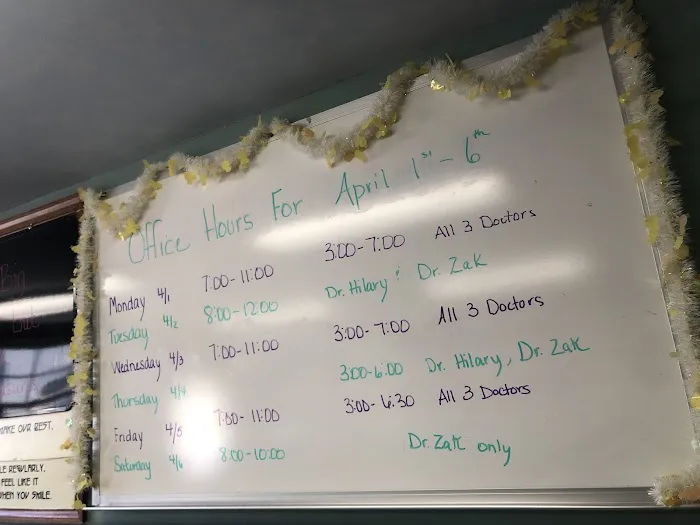 Office Hours For April 1st - 6th
Monday 4/1 7:00-11:00 3:00-7:00 All 3 Doctors
Tuesday 4/2 8:00-12:00 Dr. Hilary & Dr. Zak
Wednesday 4/3 7:00-11:00 3:00-7:00 All 3 Doctors
Thursday 4/4 3:00-6:00 Dr. Hilary, Dr. Zak
Friday 4/5 7:00-11:00 3:00-6:30 All 3 Doctors
Saturday 4/6 8:00-10:00 Dr. Zak only
Big
MAKE OUR BEST.
LE REGULARLY.
FEEL LIKE IT
WHEN YOU SMILE.